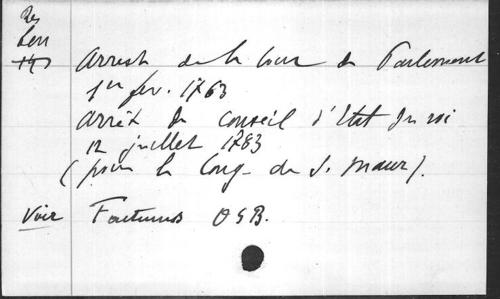 Res
Arrest de la Cour de Parlement
1er fev. 1763
Arrêt du Conseil d'Etat du roi
12 juillet 1763
(pour la Cong. de S. Maur).
Voir Factums OSB.